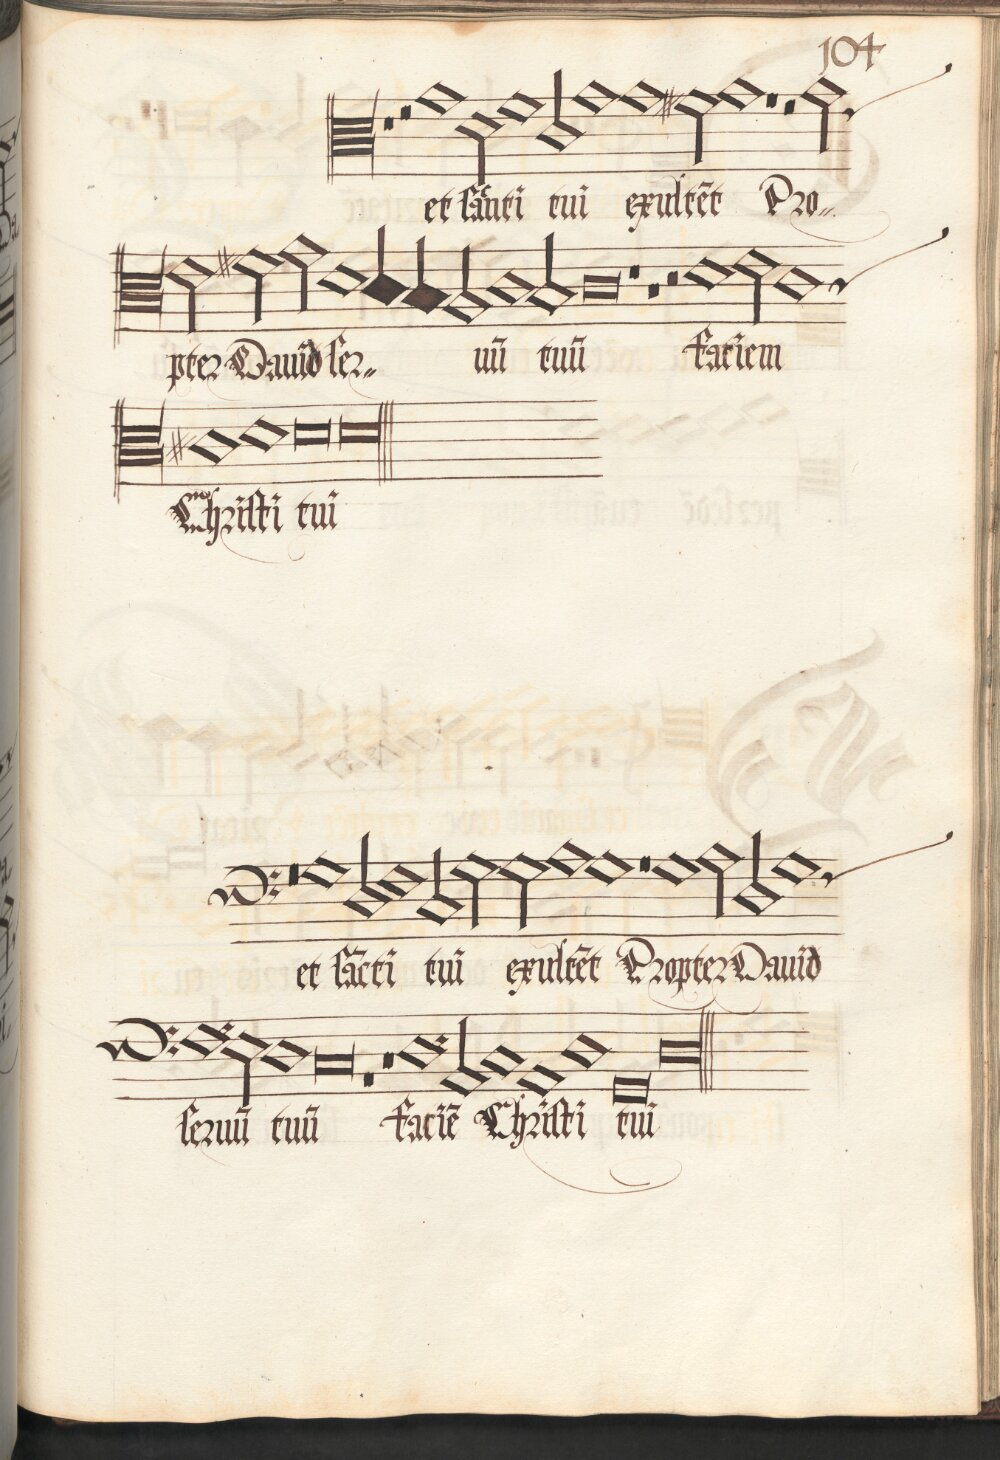 104
et sancti tui exultēt Pro..
pter Dauid ser.. uū tuū faciem
Christi tui
et sācti tui exultēt Propter Dauid
seruū tuū faciē Christi tui